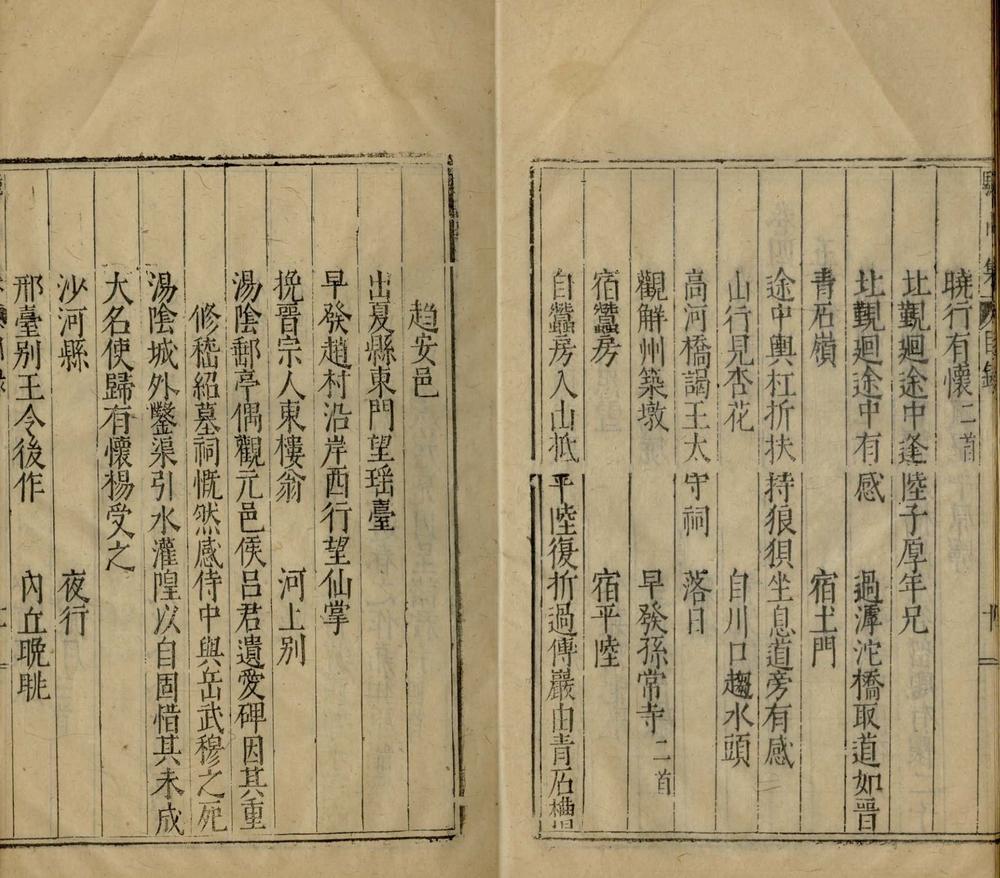 曉行有懷二首
北覲廻途中逢陸子厚年兄
北覲廻途中有感 過滹沱橋取道如晉
青石嶺 宿土門
途中輿杠折扶持狼狽坐息道旁有感
山行見杏花 自川口趨水頭
高河橋謁王太守祠 落日
觀解州築墩 早發孫常寺二首
宿蠶房 宿平陸
自蠶房入山抵平陸復折過傅巖由青石槽
趨安邑
出夏縣東門望瑶臺
早發趙村沿岸西行望仙掌
挽晉宗人東樓翁 河上別
湯陰郵亭偶觀元邑侯呂君遺愛碑因其重
修嵇紹墓祠慨然感侍中與岳武穆之死
湯陰城外鑿渠引水灌隍以自固惜其未成
大名使歸有懷楊受之
沙河縣 夜行
邢臺別王令後作 內丘晚眺